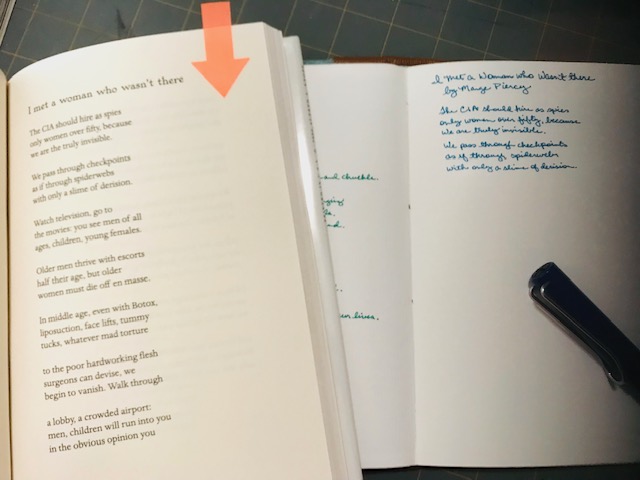 I met a woman who wasn't there
The CIA should hire as spies
only women over fifty, because
we are the truly invisible.
We pass through checkpoints
as if through spiderwebs
with only a slime of derision.
Watch television, go to
the movies: you see men of all
ages, children, young females.
Older men thrive with escorts
half their age, but older
women must die off en masse.
In middle age, even with Botox,
liposuction, face lifts, tummy
tucks, whatever mad torture
to the poor hardworking flesh
surgeons can devise, we
begin to vanish. Walk through
a lobby, a crowded airport:
men, children will run into you
in the obvious opinion you
and chuckle.
lives.
I Met a Woman who Wasn't there
by Marge Piercy
The CIA should hire as spies
only women over fifty, because
we are truly invisible.
We pass through checkpoints
as if through spiderwebs
with only a slime of derision